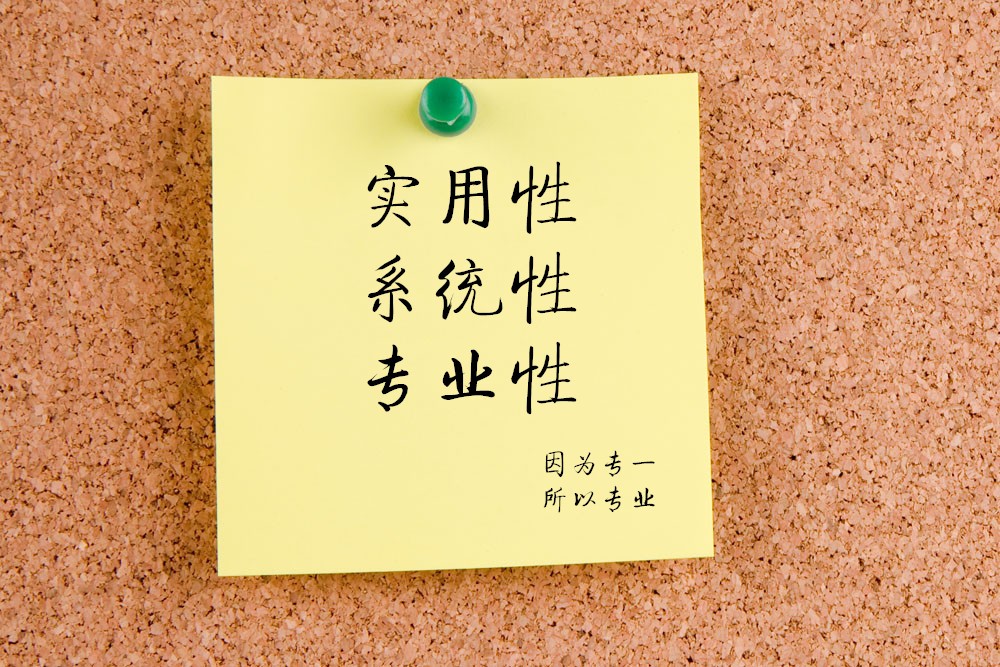 实用性
系统性
专业性
因为专一
所以专业